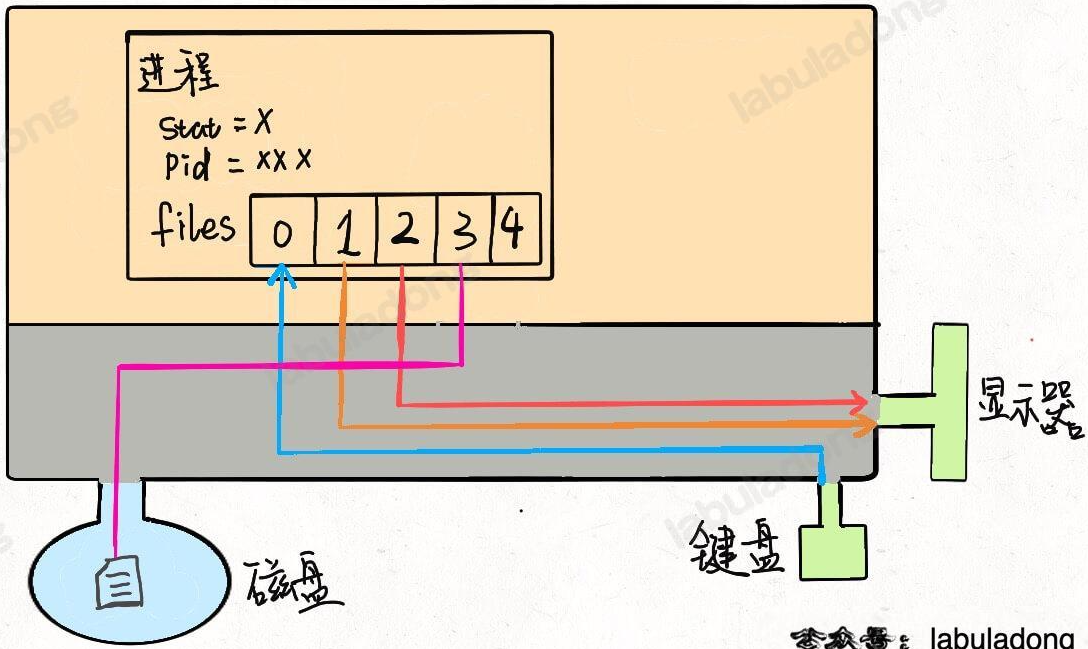 进程
stat = X
Pid = XXX
files 0 1 2 3 4
显示器
键盘
磁盘
公众号：labuladong
labuladong
labuladong
labuladong
labuladong
ong